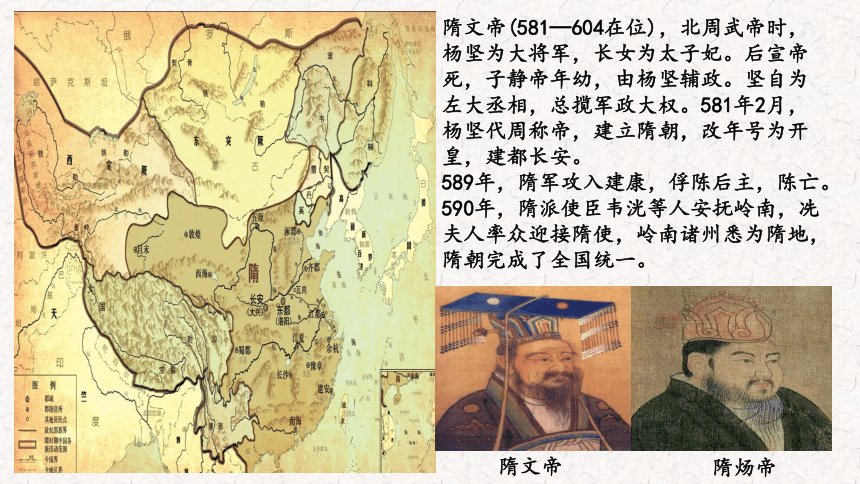 隋文帝(581—604在位)，北周武帝时，
杨坚为大将军，长女为太子妃。后宣帝
死，子静帝年幼，由杨坚辅政。坚自为
左大丞相，总揽军政大权。581年2月，
杨坚代周称帝，建立隋朝，改年号为开
皇，建都长安。
589年，隋军攻入建康，俘陈后主，陈亡。
590年，隋派使臣韦洸等人安抚岭南，冼
夫人率众迎接隋使，岭南诸州悉为隋地，
隋朝完成了全国统一。
隋文帝
隋炀帝
俄罗斯
哈萨克斯坦
东突厥
西突厥
蒙古
室韦
契丹
敦煌
且末
五原
涿郡
西海
隋
齐郡
瓦岗
长安
(大兴)
东都
(洛阳)
江都
江夏
余杭
蜀郡
豫章
长沙
建安
南海
流求
印度
图例
都城